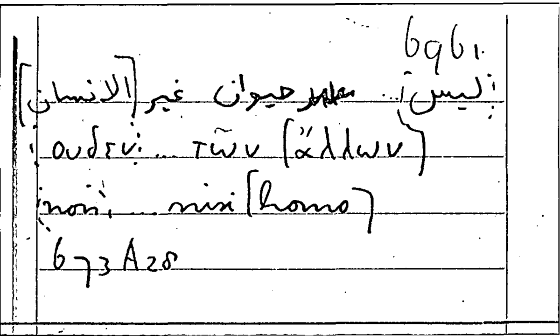 6961.
ليس ... حيوان غير [الانسان]
ουδεν ... τῶν (ἄλλων)
non ... nisi [homo]
673 A28